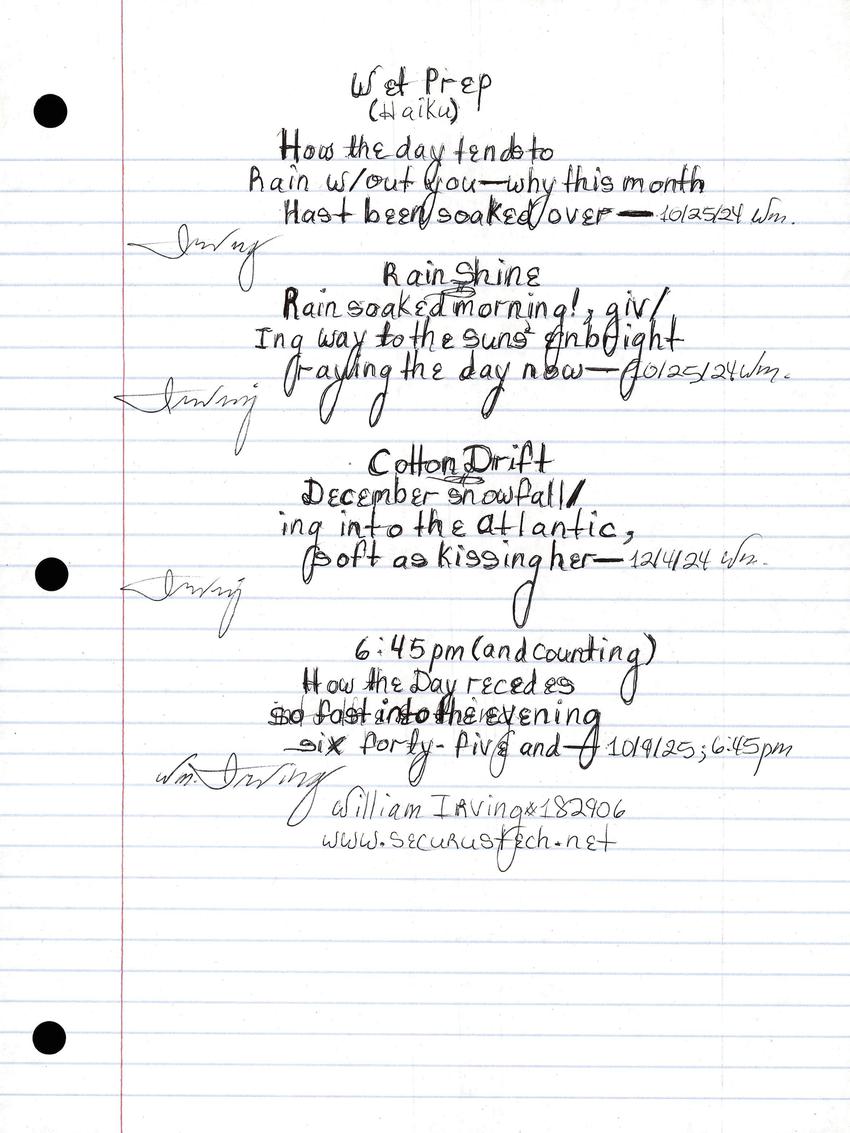 Wet Prep
(Haiku)
How the day tends to
Rain w/out you—why this month
Hast been soaked over — 10/25/24 Wm.
Irving
Rain Shine
Rain soaked morning!, giv/
Ing way to the suns'
the day now— 10/25/24 Wm.
Irving
Cotton Drift
December snowfall/
ing into the atlantic,
soft as kissing her— 12/4/24 Wm.
Irving
6:45pm (and counting)
How the Day recedes
so fast into the evening
six forty-five and— 10/9/25; 6:45pm
Wm. Irving
William Irving#182906
www.securustech.net